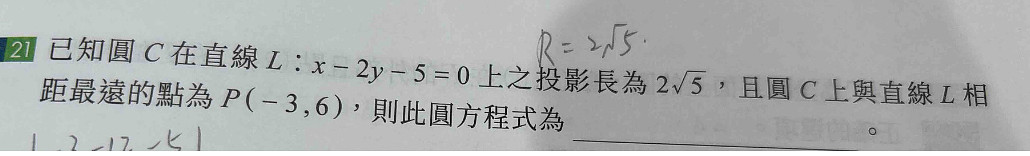 R = 2√5.
21 已知圓 C 在直線 L：x − 2y − 5 = 0 上之投影長為 2√5，且圓 C 上與直線 L 相
距最遠的點為 P(−3,6)，則此圓方程式為＿＿＿＿＿＿＿＿。